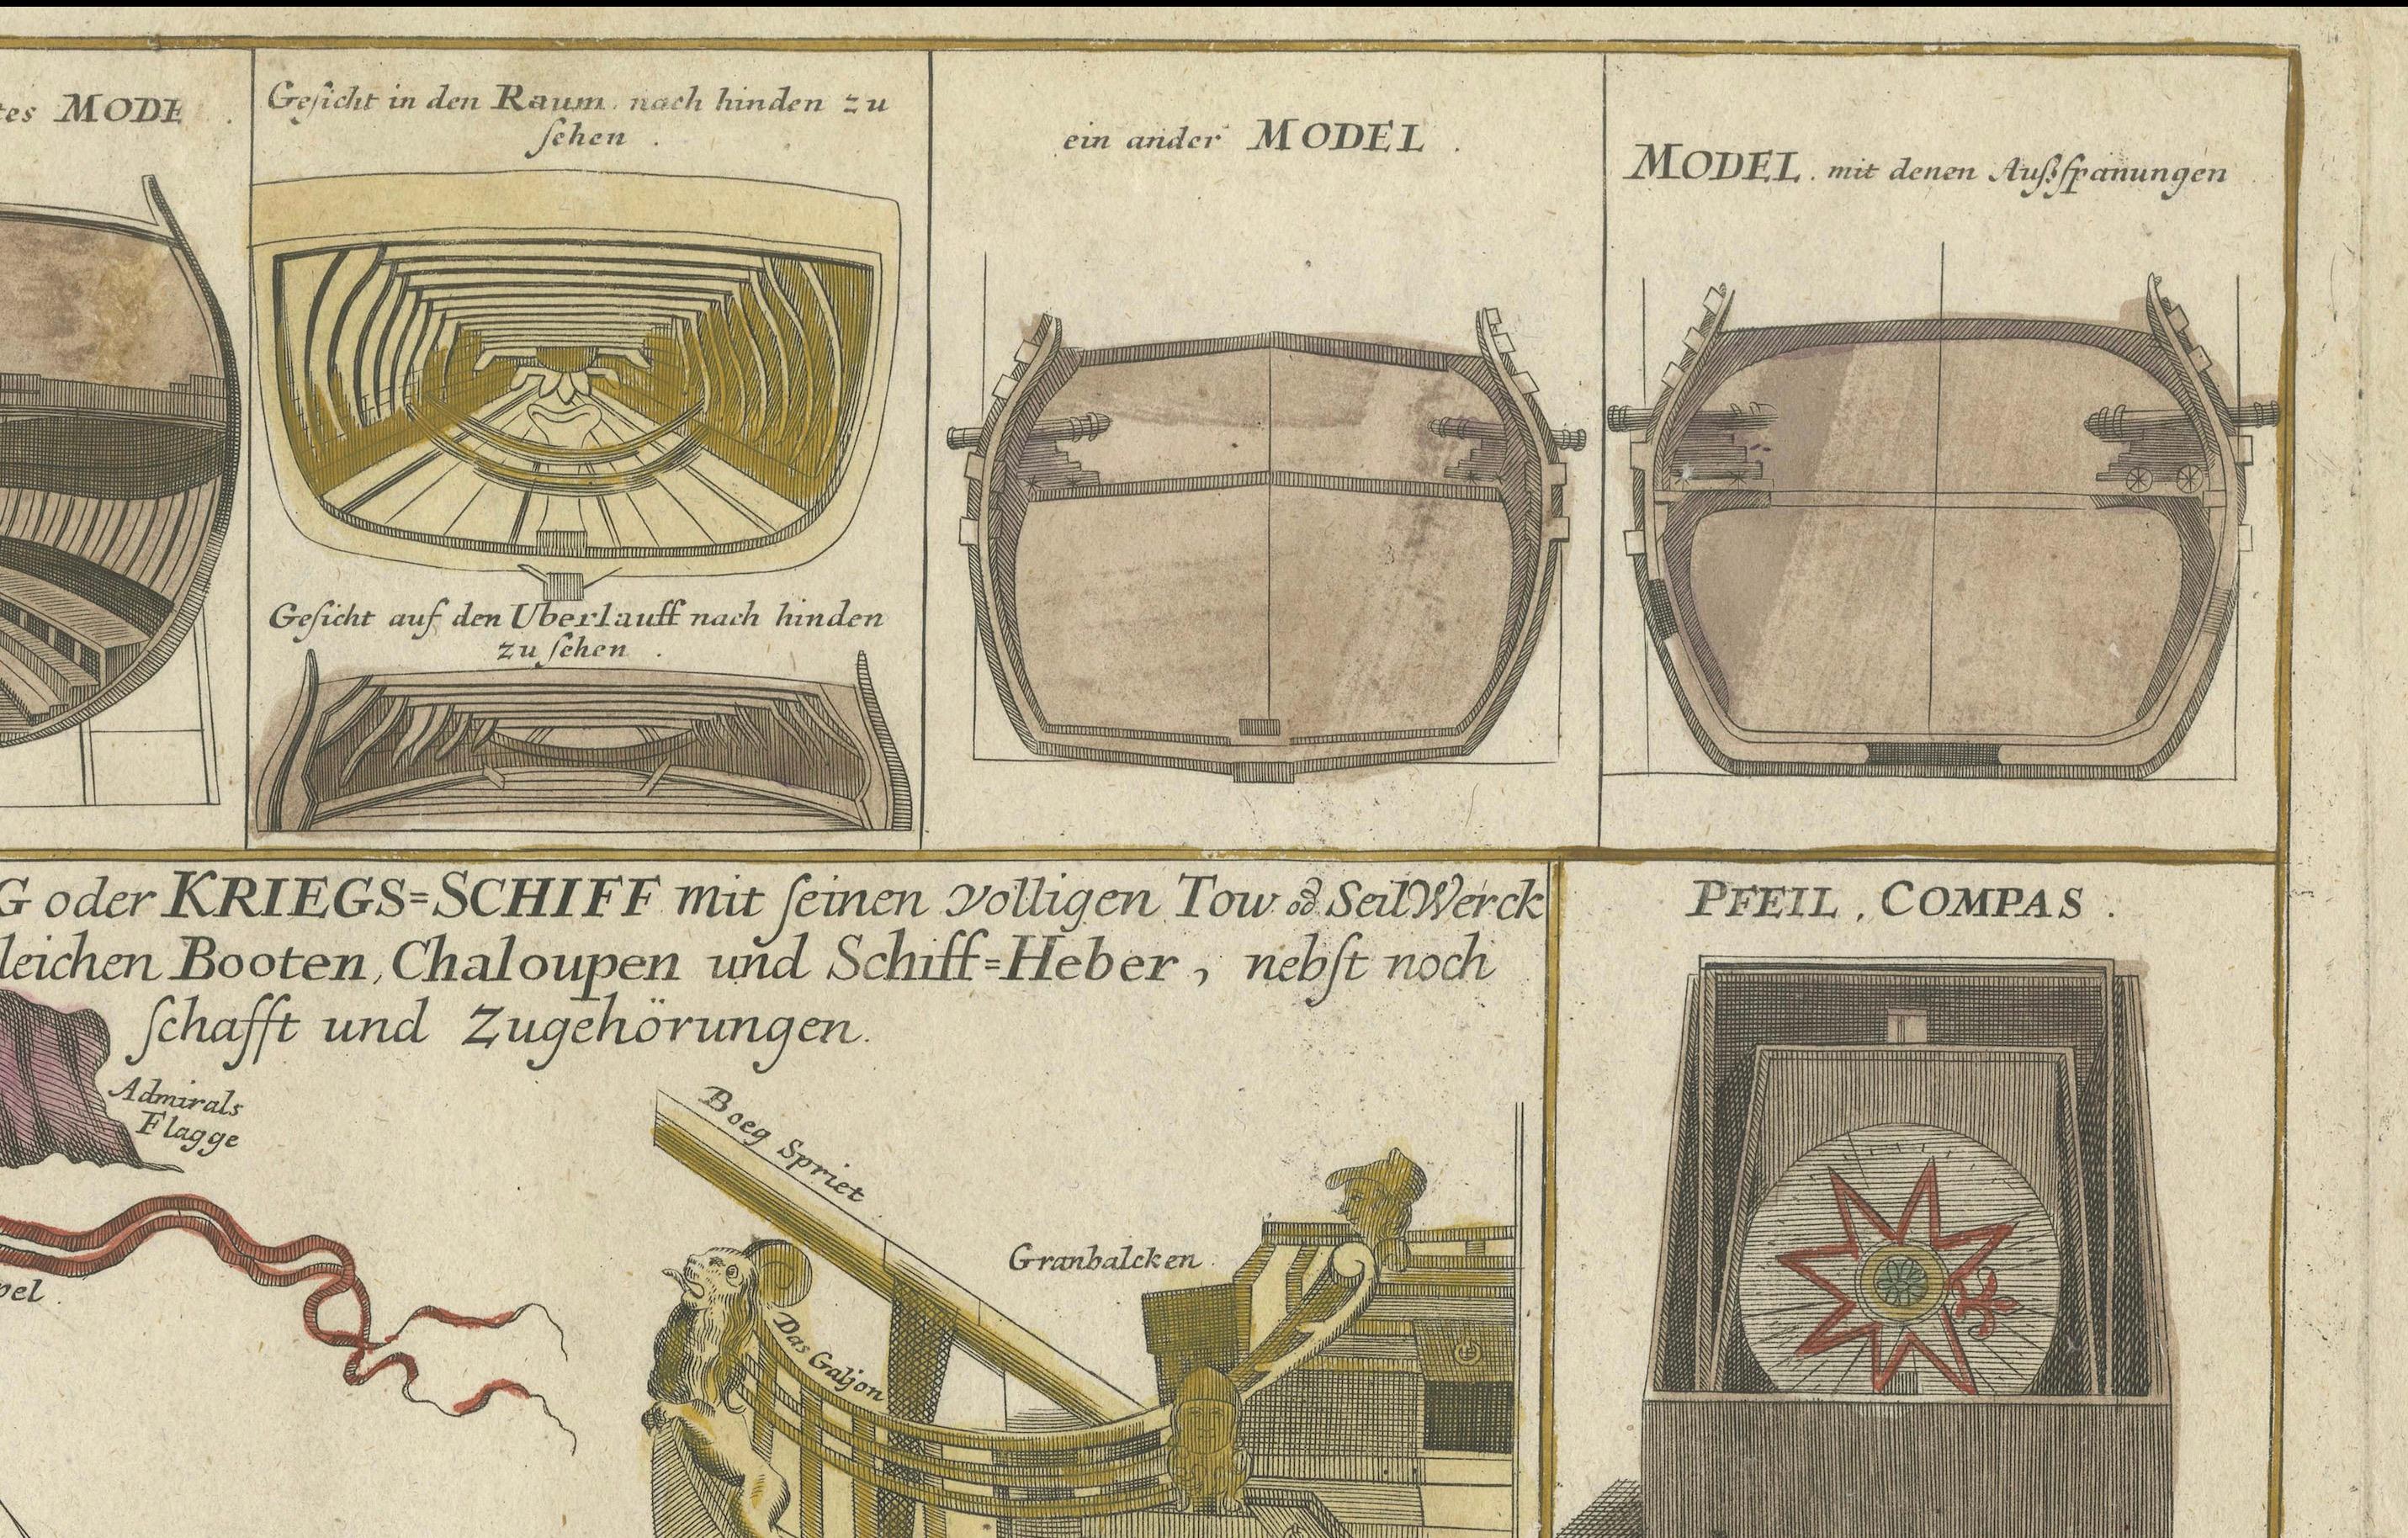 tes MODE
Gesicht in den Raum nach hinden zu
sehen .
ein ander MODEL .
MODEL . mit denen Außspanungen
Gesicht auf den Uberlauff nach hinden
zu sehen .
G oder KRIEGS=SCHIFF mit seinen völligen Tow od SeilWerck
leichen Booten, Chaloupen und Schiff=Heber, nebst noch
schafft und Zugehörungen.
PFEIL, COMPAS .
Admirals
Flagge
Boeg Spriet
Granbalcken .
pel .
Das Galjon